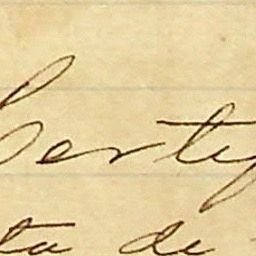 Certif
ta de